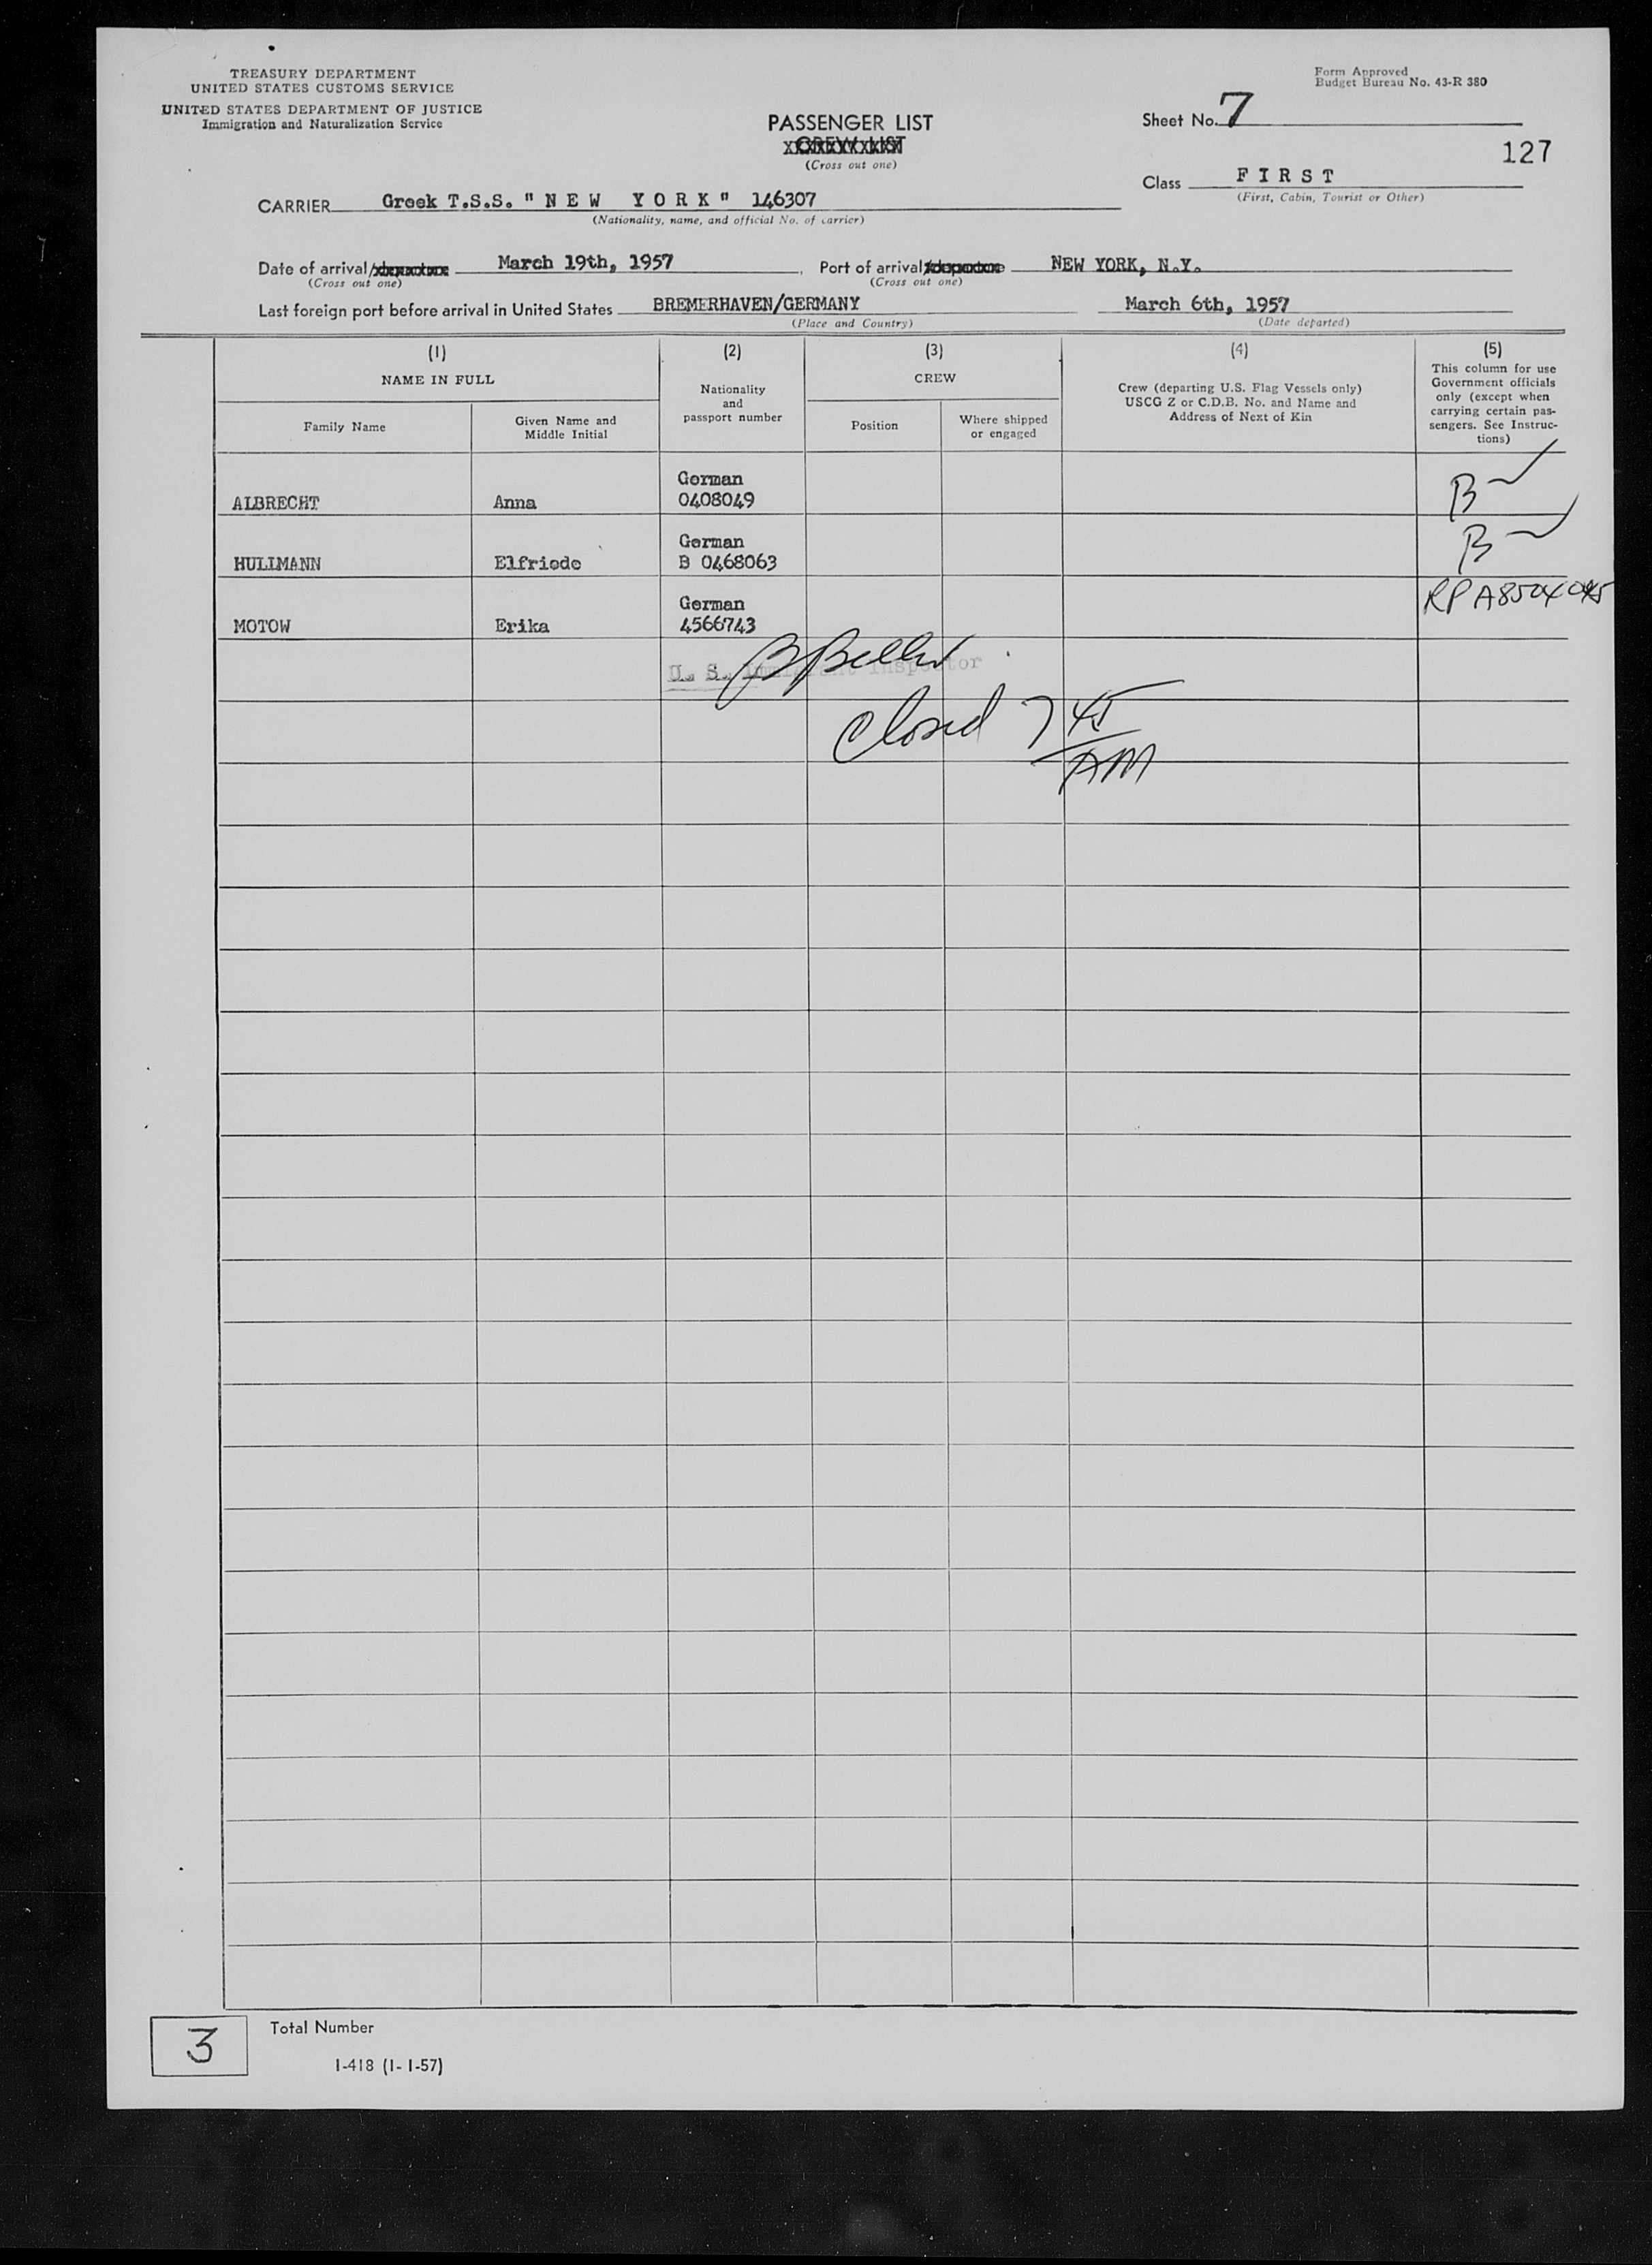 TREASURY DEPARTMENT
UNITED STATES CUSTOMS SERVICE
UNITED STATES DEPARTMENT OF JUSTICE
Immigration and Naturalization Service
Form Approved
Budget Bureau No. 43-R 380
PASSENGER LIST
CREW LIST
(Cross out one)
Sheet No. 7
127
Class FIRST
(First, Cabin, Tourist or Other)
CARRIER Greek T.S.S. "NEW YORK" 146307
(Nationality, name, and official No. of carrier)
Date of arrival/departure March 19th, 1957 Port of arrival/departure NEW YORK, N.Y.
(Cross out one) (Cross out one)
Last foreign port before arrival in United States BREMERHAVEN/GERMANY March 6th, 1957
(Place and Country) (Date departed)
(1) (2) (3) (4) (5)
NAME IN FULL
Family Name
Given Name and
Middle Initial
Nationality
and
passport number
CREW
Position
Where shipped
or engaged
Crew (departing U.S. Flag Vessels only)
USCG Z or C.D.B. No. and Name and
Address of Next of Kin
This column for use
Government officials
only (except when
carrying certain pas-
sengers. See Instruc-
tions)
German
ALBRECHT Anna 0408049 B
German
HULLMANN Elfriede B 0468063 B
German RP A8504045
MOTOW Erika 4566743
U. S. Immigrant Inspector
Closed 7 45
AM
3
Total Number
I-418 (1-1-57)